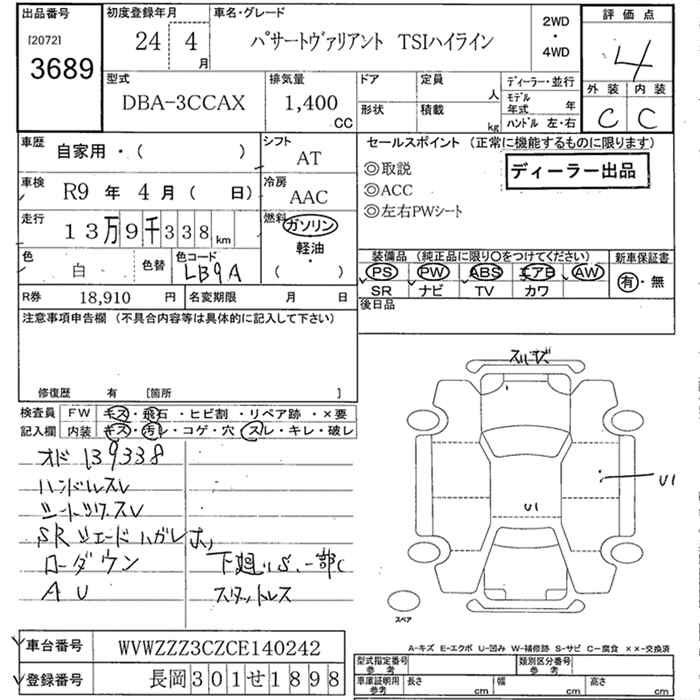 出品番号
[2072]
3689
初度登録年月
24 4
月
車名・グレード
パサートヴァリアント TSIハイライン
2WD
・
4WD
評価点
4
外装 内装
C C
型式
DBA-3CCAX
排気量
1,400
CC
ドア
定員
人
形状
積載
kg
ディーラー・並行
モデル
年式 年
ハンドル 左・右
車歴
自家用・( )
シフト
AT
車検
R9 年 4 月 ( 日)
冷房
AAC
走行
13万9千338km
燃料
ガソリン
軽油
( ・ )
色
白
色替
色コード
LB9A
R券 18,910 円
名変期限 月 日
セールスポイント (正常に機能するものに限ります)
◎取説
◎ACC
◎左右PWシート
ディーラー出品
装備品 (純正品に限り○をつけてください)
PS PW ABS エアB AW
SR ナビ TV カワ
新車保証書
有・無
後日品
注意事項申告欄 (不具合内容等は具体的に記入して下さい)
修復歴 有 [箇所 ]
検査員 FW キズ・飛石・ヒビ割・リペア跡・×要
記入欄 内装 キズ・汚レ・コゲ・穴・スレ・キレ・破レ
オド 139338
ハンドルスレ
シートツケスレ
SRシェードハガレ
ローダウン
AU
下廻りS、一部C
スタットレス
U1
U1
スペア
A-キズ E-エクボ U-凹み W-補修跡 S-サビ C-腐食 ××-交換済
車台番号 WVWZZZ3CZCE140242
登録番号 長岡301せ1898
型式指定番号
参考
類別区分番号
参考
車庫証明用
参考
長さ cm
幅 cm
高さ cm